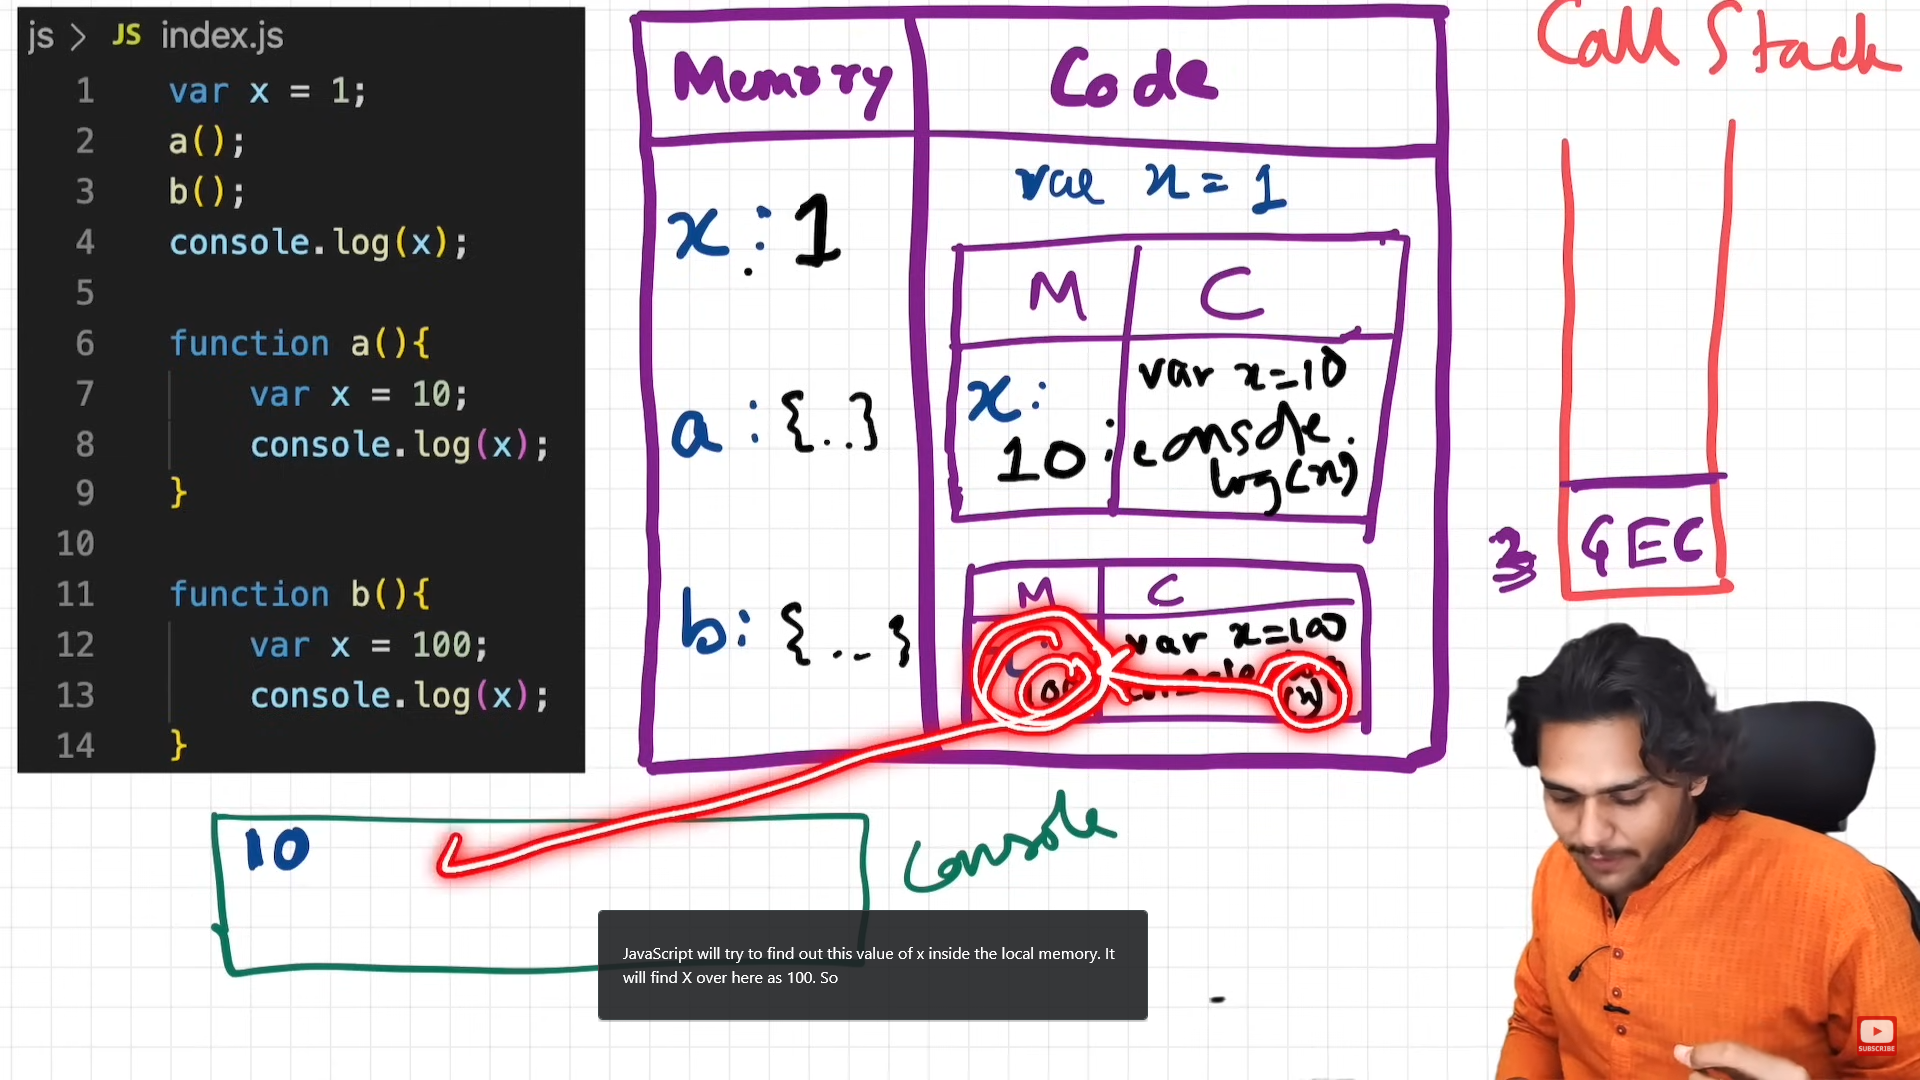 js > JS index.js
1 var x = 1;
2 a();
3 b();
4 console.log(x);
5
6 function a(){
7 var x = 10;
8 console.log(x);
9 }
10
11 function b(){
12 var x = 100;
13 console.log(x);
14 }
Memory
Code
x : 1
a : {..}
b : {._}
var x = 1
M C
x :
10
var x = 10
console.
log(x)
M C
100
var x = 100
(x)
Call Stack
GEC
10
Console
JavaScript will try to find out this value of x inside the local memory. It
will find X over here as 100. So
SUBSCRIBE